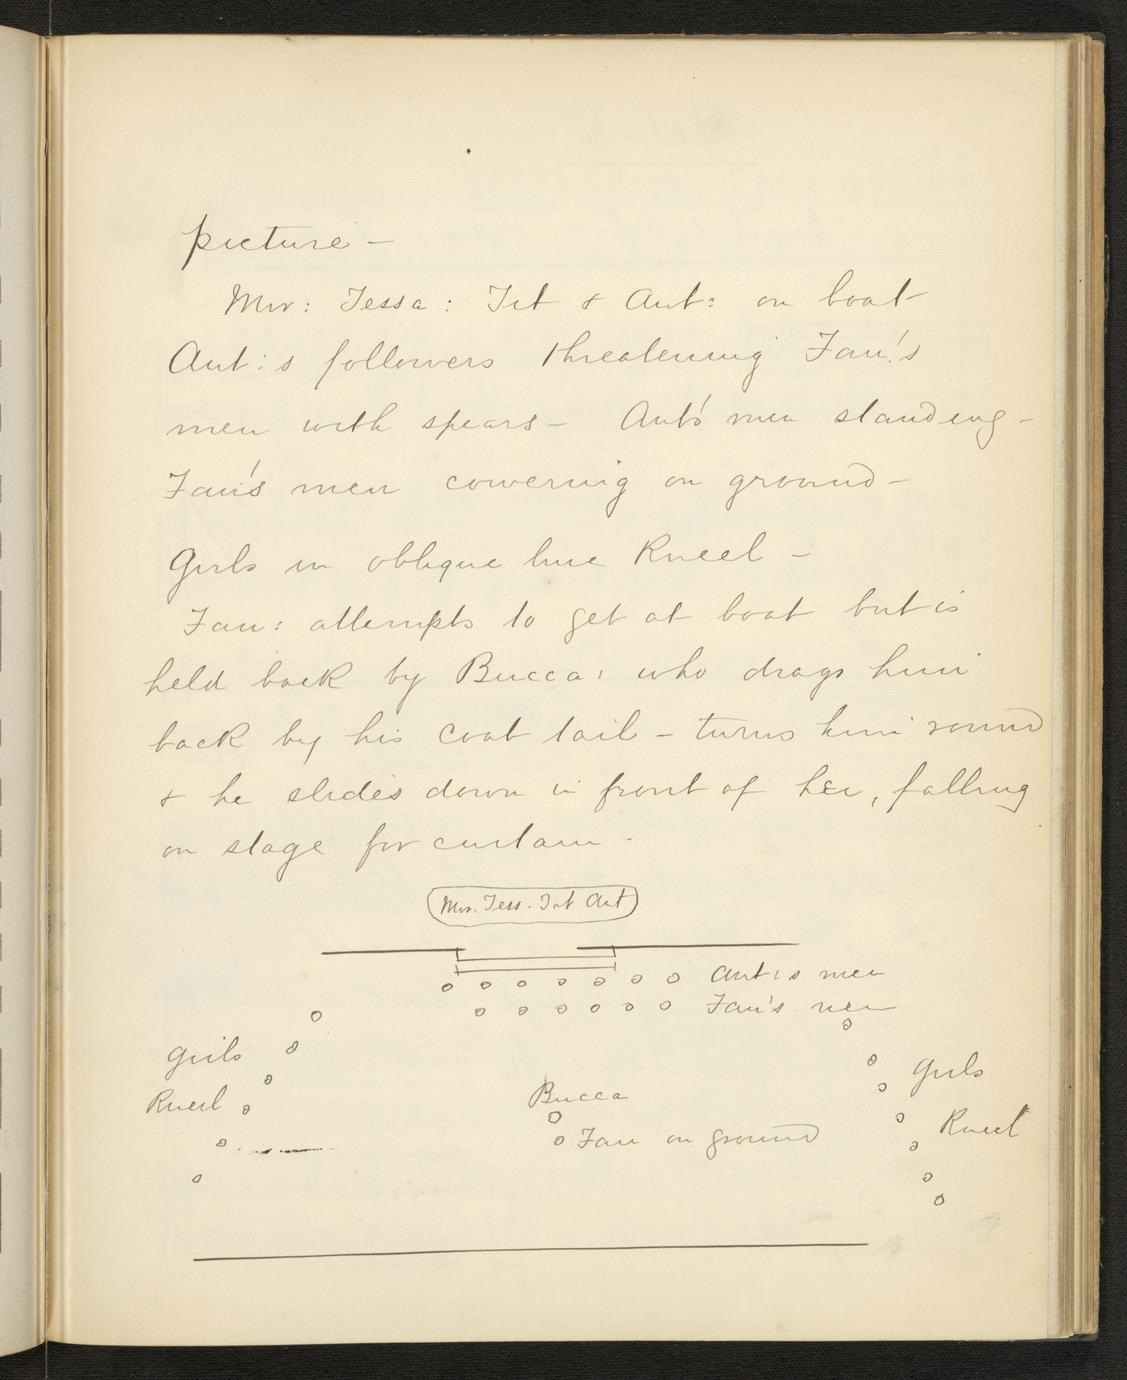 picture –
Mir: Tessa: Tit & Ant: on boat
Ant:s followers threatening Fan:'s
men with spears – Ant's men standing –
Fan's men cowering on ground –
Girls in oblique line Kneel –
Fan: attempts to get at boat but is
held back by Bucca: who drags him
back by his coat tail – turns him round
& he slides down in front of her, falling
on stage for curtain.
Mir. Tess. Tit Ant
Ant:s men
Fan's men
Girls
Kneel
Bucca
Fan on ground
Girls
Kneel